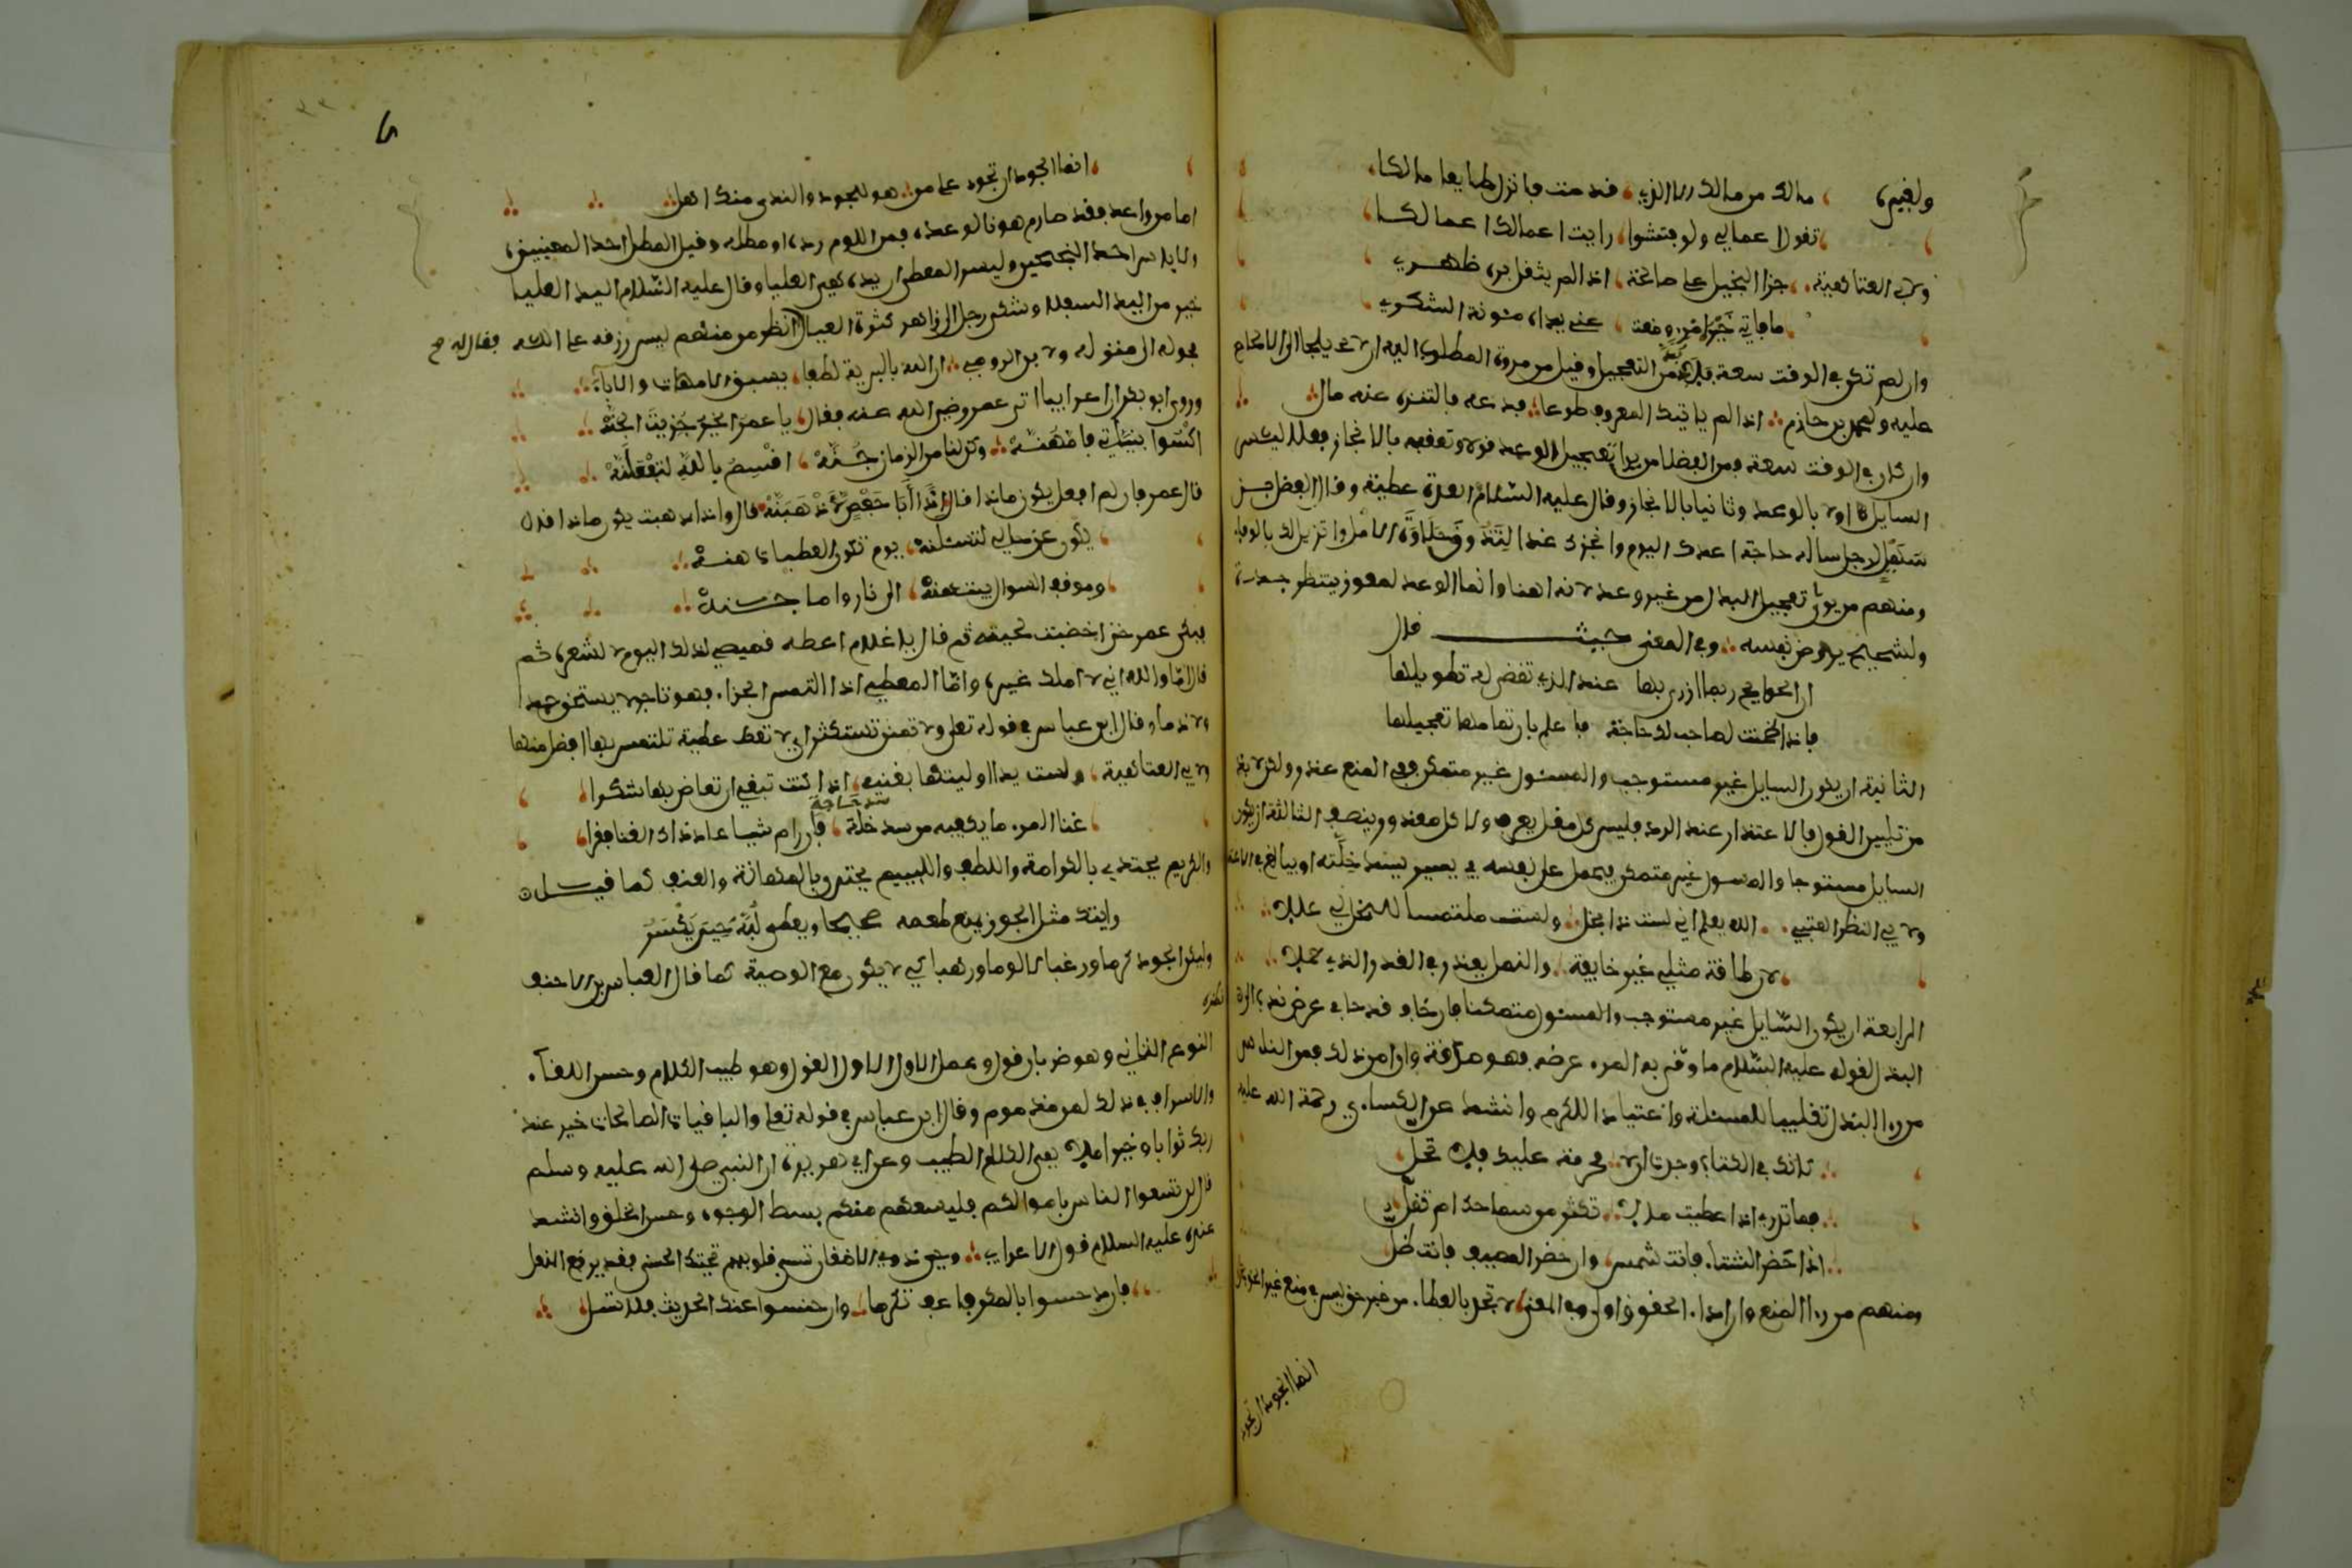 ولغيره مالك من مالك الا الذي قدمت فابذل طايعا مالكا
تقول اعمالي ولو فتشوا رايت اعمالك اعمالكا
ولابي العتاهية جزا البخيل علي صالحة اذا لم يثقل بره ظهري
ما فاتني خير امرئ وضعت عني يداه مئونة الشكر
وان لم تكن في الوقت سعة فلا بد من التعجيل وقيل من مروة المطلوب اليه ان لا يلجا الى الالحاح
عليه ولمحمد بن حازم اذا لم ياتيك المعروف طوعا فدعه فالتنزه عنه مال
وان كان في الوقت سعة فمن الفضلا من يرا تعجيل الوعد قولا وتعقبه بالانجاز فعلا ليكسر
السايل اولا بالوعد وثانيا بالانجاز وقال عليه السلام العدة عطية وقال الفضل بن
سهل لرجل ساله حاجة اعدك اليوم وانجزك غدا لتذوق حلاوة الامل واتزين لك بالوفاء
ومنهم من يوثر تعجيل البذل من غير وعد لانه اهنا وانما الوعد لمعوز ينتظر جدة
ولشحيح يروض نفسه وفي المعنى حيث قال
ان الحوايج ربما ازرى بها عند الذي تقضى له تطويلها
فاذا ضمنت لصاحب لك حاجة فاعلم بان تمامها تعجيلها
الثانية ان يكون السايل غير مستوجب والمسئول غير متمكن ففي المنع عذر ولكن لا بد
من تليين القول فالاعتذار عند الرد فليس كل مقل يعرف ولا كل معذور ينصف الثالثة ان يكون
السايل مستوجبا والمسئول غير متمكن فيحمل على نفسه في يسير يسد خلته او يبالغ في الاعتذار
ولابي النظر العتبي الله يعلم اني لست ذا بخل ولست ملتمسا للبخل لي عللا
لاكن طاقة مثلي غير خافية والنمل يعذر في القدر الذي حملا
الرابعة ان يكون السايل غير مستوجب والمسئول متمكنا فان خاف قدحا في عرض
البذل لقوله عليه السلام ما وقى به المرء عرضه فهو صدقة وان امن ذلك فمن الناس
من را البذل تغليبا للمسئلة واعتيادا للكرم وانشد عن الكساءي رحمة الله عليه
كانك في الكتاب وجدت لا محرمة عليك فلا تحل
فما تدري اذا اعطيت مالا تكثر من سماحك ام تقل
اذا حضر الشتاء فانت شمس وان حضر المصيف فانت ظل
ومنهم من را المنع وان اداء الحقوق اولى وفي المعنى لا تجد بالعطاء من غير حق ليس في منع غير ذي الحق بخل
انما الجود ان تجود
انما الجود ان تجود على من هو للجود والندى منك اهل
اما من واعد فقد صار مرهونا لوعده فمن اللوم رده او مطله وقيل المطل احد المنعين
والياس احد النجحين وليس المعطي ان يده هي العليا وقال عليه السلام اليد العليا
خير من اليد السفلا وشكى رجل الى زاهد كثرة العيال انظر من منهم ليس رزقه على الله فقال له
فحوله الى منزله ولابن الرومي ان الله بالبرية لطفا يسبق الامهات والاباء
وروى ابو بكر ان اعرابيا اتى عمر رضي الله عنه فقال يا عمر الخير جزيت الجنه
اكس بنياتي وامهنه وكن لنا من الزمان جنه اقسم بالله لتفعلنه
قال عمر فان لم افعل يكون ماذا قال اذا ابا حفص لاذهبنه قال واذا ذهبت يكون ماذا قال
يكون عن حالي لتسئلنه يوم تكون العطيات هنه
وموقف المسئول بينهنه اما الى نار واما جنه
فبكى عمر حتى اخضبت لحيته ثم قال يا غلام اعطه قميصي لذلك اليوم لا لشعره ثم
قال اما والله اني لا املك غيره واما المعطي اذا التمس الجزاء فهو تاجر لا يستحق حمدا
ولا ذما وقال ابن عباس في قوله تعلى ولا تمنن تستكثر اي لا تعط عطية تلتمس بها افضل منها
ولابي العتاهية وليست يدا اوليتها بغنيمة اذا كنت تبغي ان تعاض بها شكرا
غنا المرء ما يكفيه من سد خلة فان رام شيا عاد ذاك الغنا فقرا
حاجة
والكريم يجتدى بالكرامة واللطف واللييم يجتدى بالمهانة والعنف كما قيل
رايتك مثل الجوز يمنع طعمه صحيحا ويعطي لبه حين يكسر
وليكن الجود كرما ورغبا لا لوما ورهبا كي لا يكون مع الوصية كما قال العباس بن الاحنف
النوع الثاني وهو ضربان قول وعمل الاول الاول القول وهو طيب الكلام وحسن اللقاء
والاسراف في ذلك لمر مذموم وقال ابن عباس في قوله تعلى والباقيات الصالحات خير عند
ربك ثوابا وخير املا يعني الكلام الطيب وعن ابي هريرة ان النبي صلى الله عليه وسلم
قال لن تسعوا الناس باموالكم فليسعهم منكم بسط الوجوه وحسن الخلق وانشد
عنده عليه السلام قول الاعرابي وحي ذوي الاضغان تسب قلوبهم تحيتك الحسنى فقد يرقع النعل
فان دحسوا بالمكر فاعف تكرما وان خنسوا عند الحديث فلا تسل